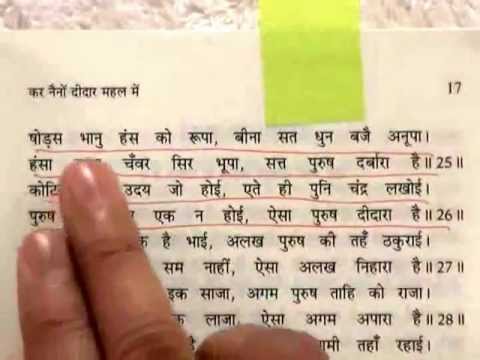 कर नैनों दीदार महल में 17
षोड़स भानु हंस को रूपा, बीना सत धुन बजै अनूपा।
हंसा चँवर सिर भूपा, सत्त पुरुष दर्बारा है॥25॥
कोटि उदय जो होई, एते ही पुनि चंद्र लखोई।
पुरुष एक न होई, ऐसा पुरुष दीदारा है॥26॥
क है भाई, अलख पुरुष की तहँ ठकुराई।
सम नाहीं, ऐसा अलख निहारा है॥27॥
इक साजा, अगम पुरुष ताहि को राजा।
क लाजा, ऐसा अगम अपारा है॥28॥
तहाँ रहाई।